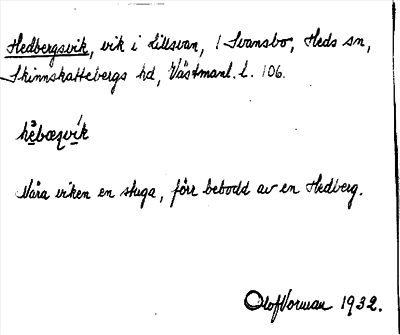 Hedbergsvik, vik i Lillsvan, 1 Svansbo, Heds sn,
Skinnskattebergs hd, Västmanl. l. 106.
hè̱bæṣví̱k
Nära viken en stuga, förr bebodd av en Hedberg.
Olof Vorman 1932.